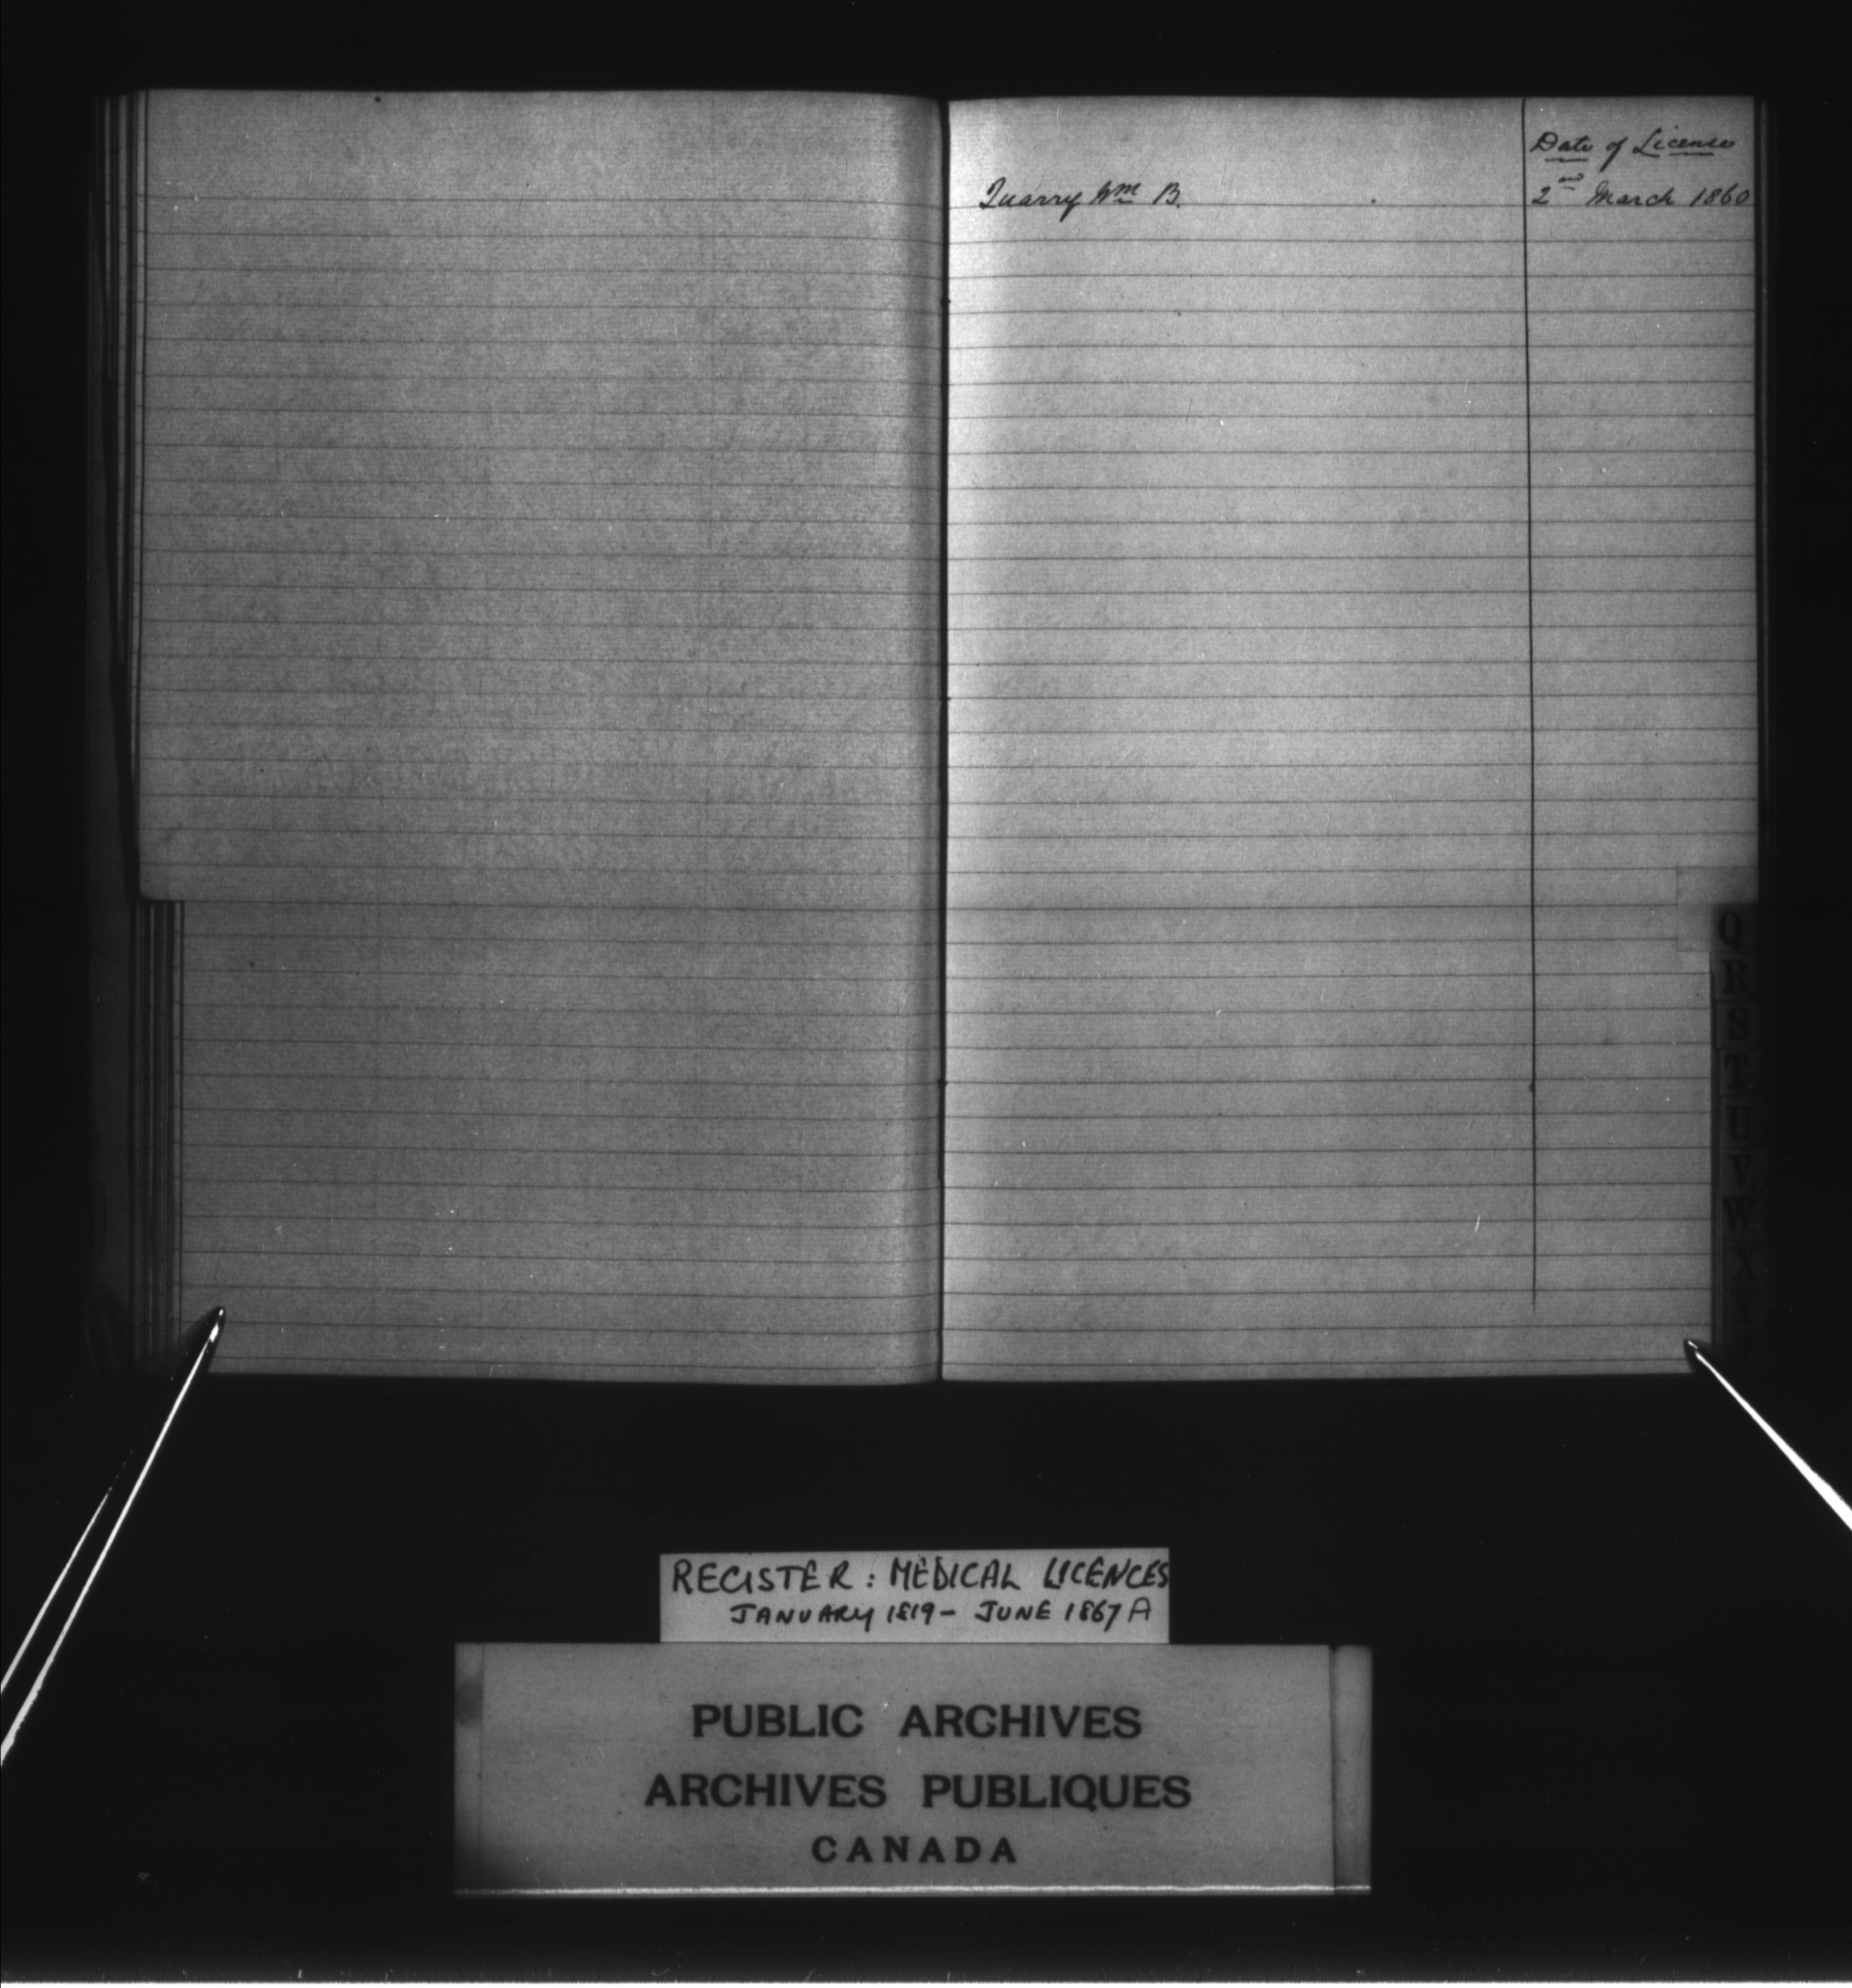 Date of License
Quarry Wm B. 2nd March 1860
Q
R
S
T
U
V
W
X
Y
REGISTER: MEDICAL LICENCES
JANUARY 1819 - JUNE 1867 A
PUBLIC ARCHIVES
ARCHIVES PUBLIQUES
CANADA